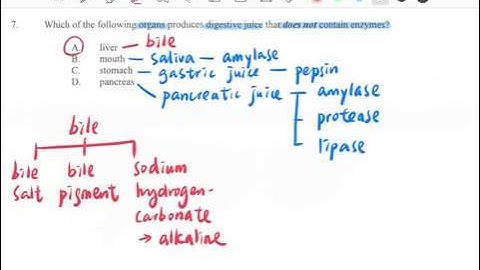 7. Which of the following organs produces digestive juice that does not contain enzymes?
A. liver — bile
B. mouth — saliva — amylase
C. stomach — gastric juice — pepsin
D. pancreas pancreatic juice amylase
protease
lipase
bile
bile salt
bile pigment
sodium hydrogen-
carbonate
→ alkaline